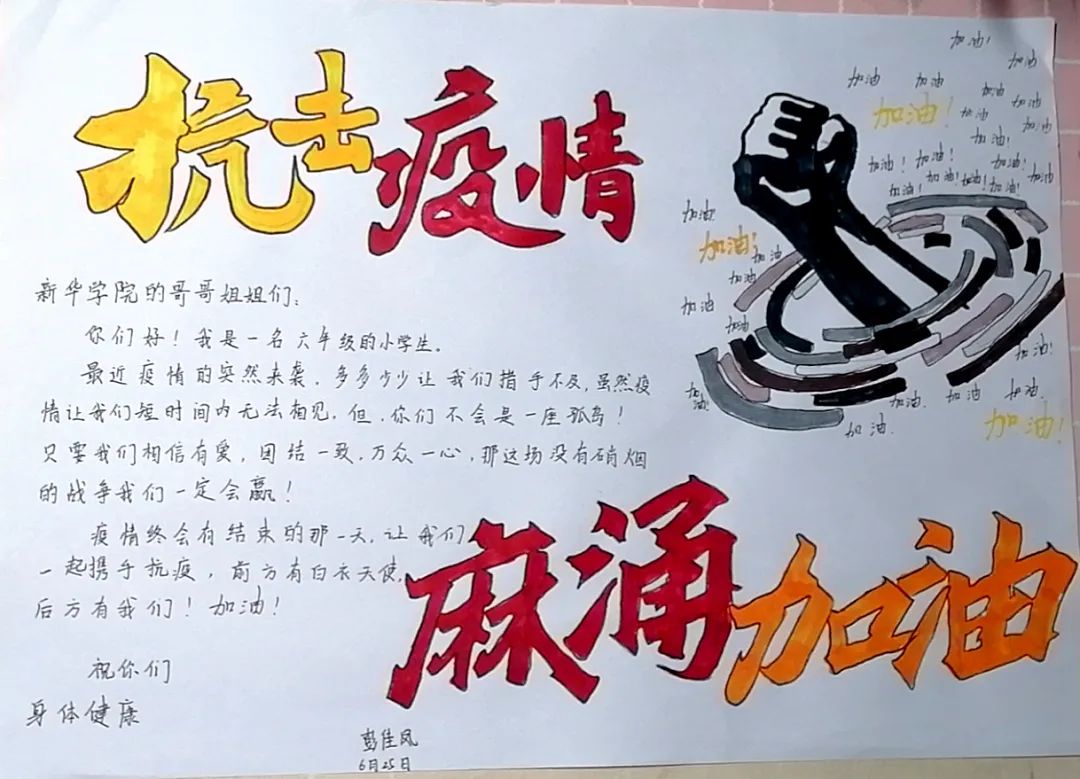 抗击疫情
新华学院的哥哥姐姐们:
你们好！我是一名六年级的小学生。
最近疫情的突然来袭，多多少少让我们措手不及，虽然疫
情让我们短时间内无法相见，但，你们不会是一座孤岛！
只要我们相信有爱，团结一致，万众一心，那这场没有硝烟
的战争我们一定会赢！
疫情终会有结束的那一天，让我们
一起携手抗疫，前方有白衣天使，
后方有我们！加油！
祝你们
身体健康
彭佳凤
6月25日
加油!
加油
加油
加油
加油
加油!
加油
加油
加油
加油!
加油!
加油!
加油!
加油!
加油!
加油!
加油!
加油
加油
加油!
加油
加油
加油
加油
加油!
加油!
加油.
加油
加油.
加油.
加油!
麻涌加油